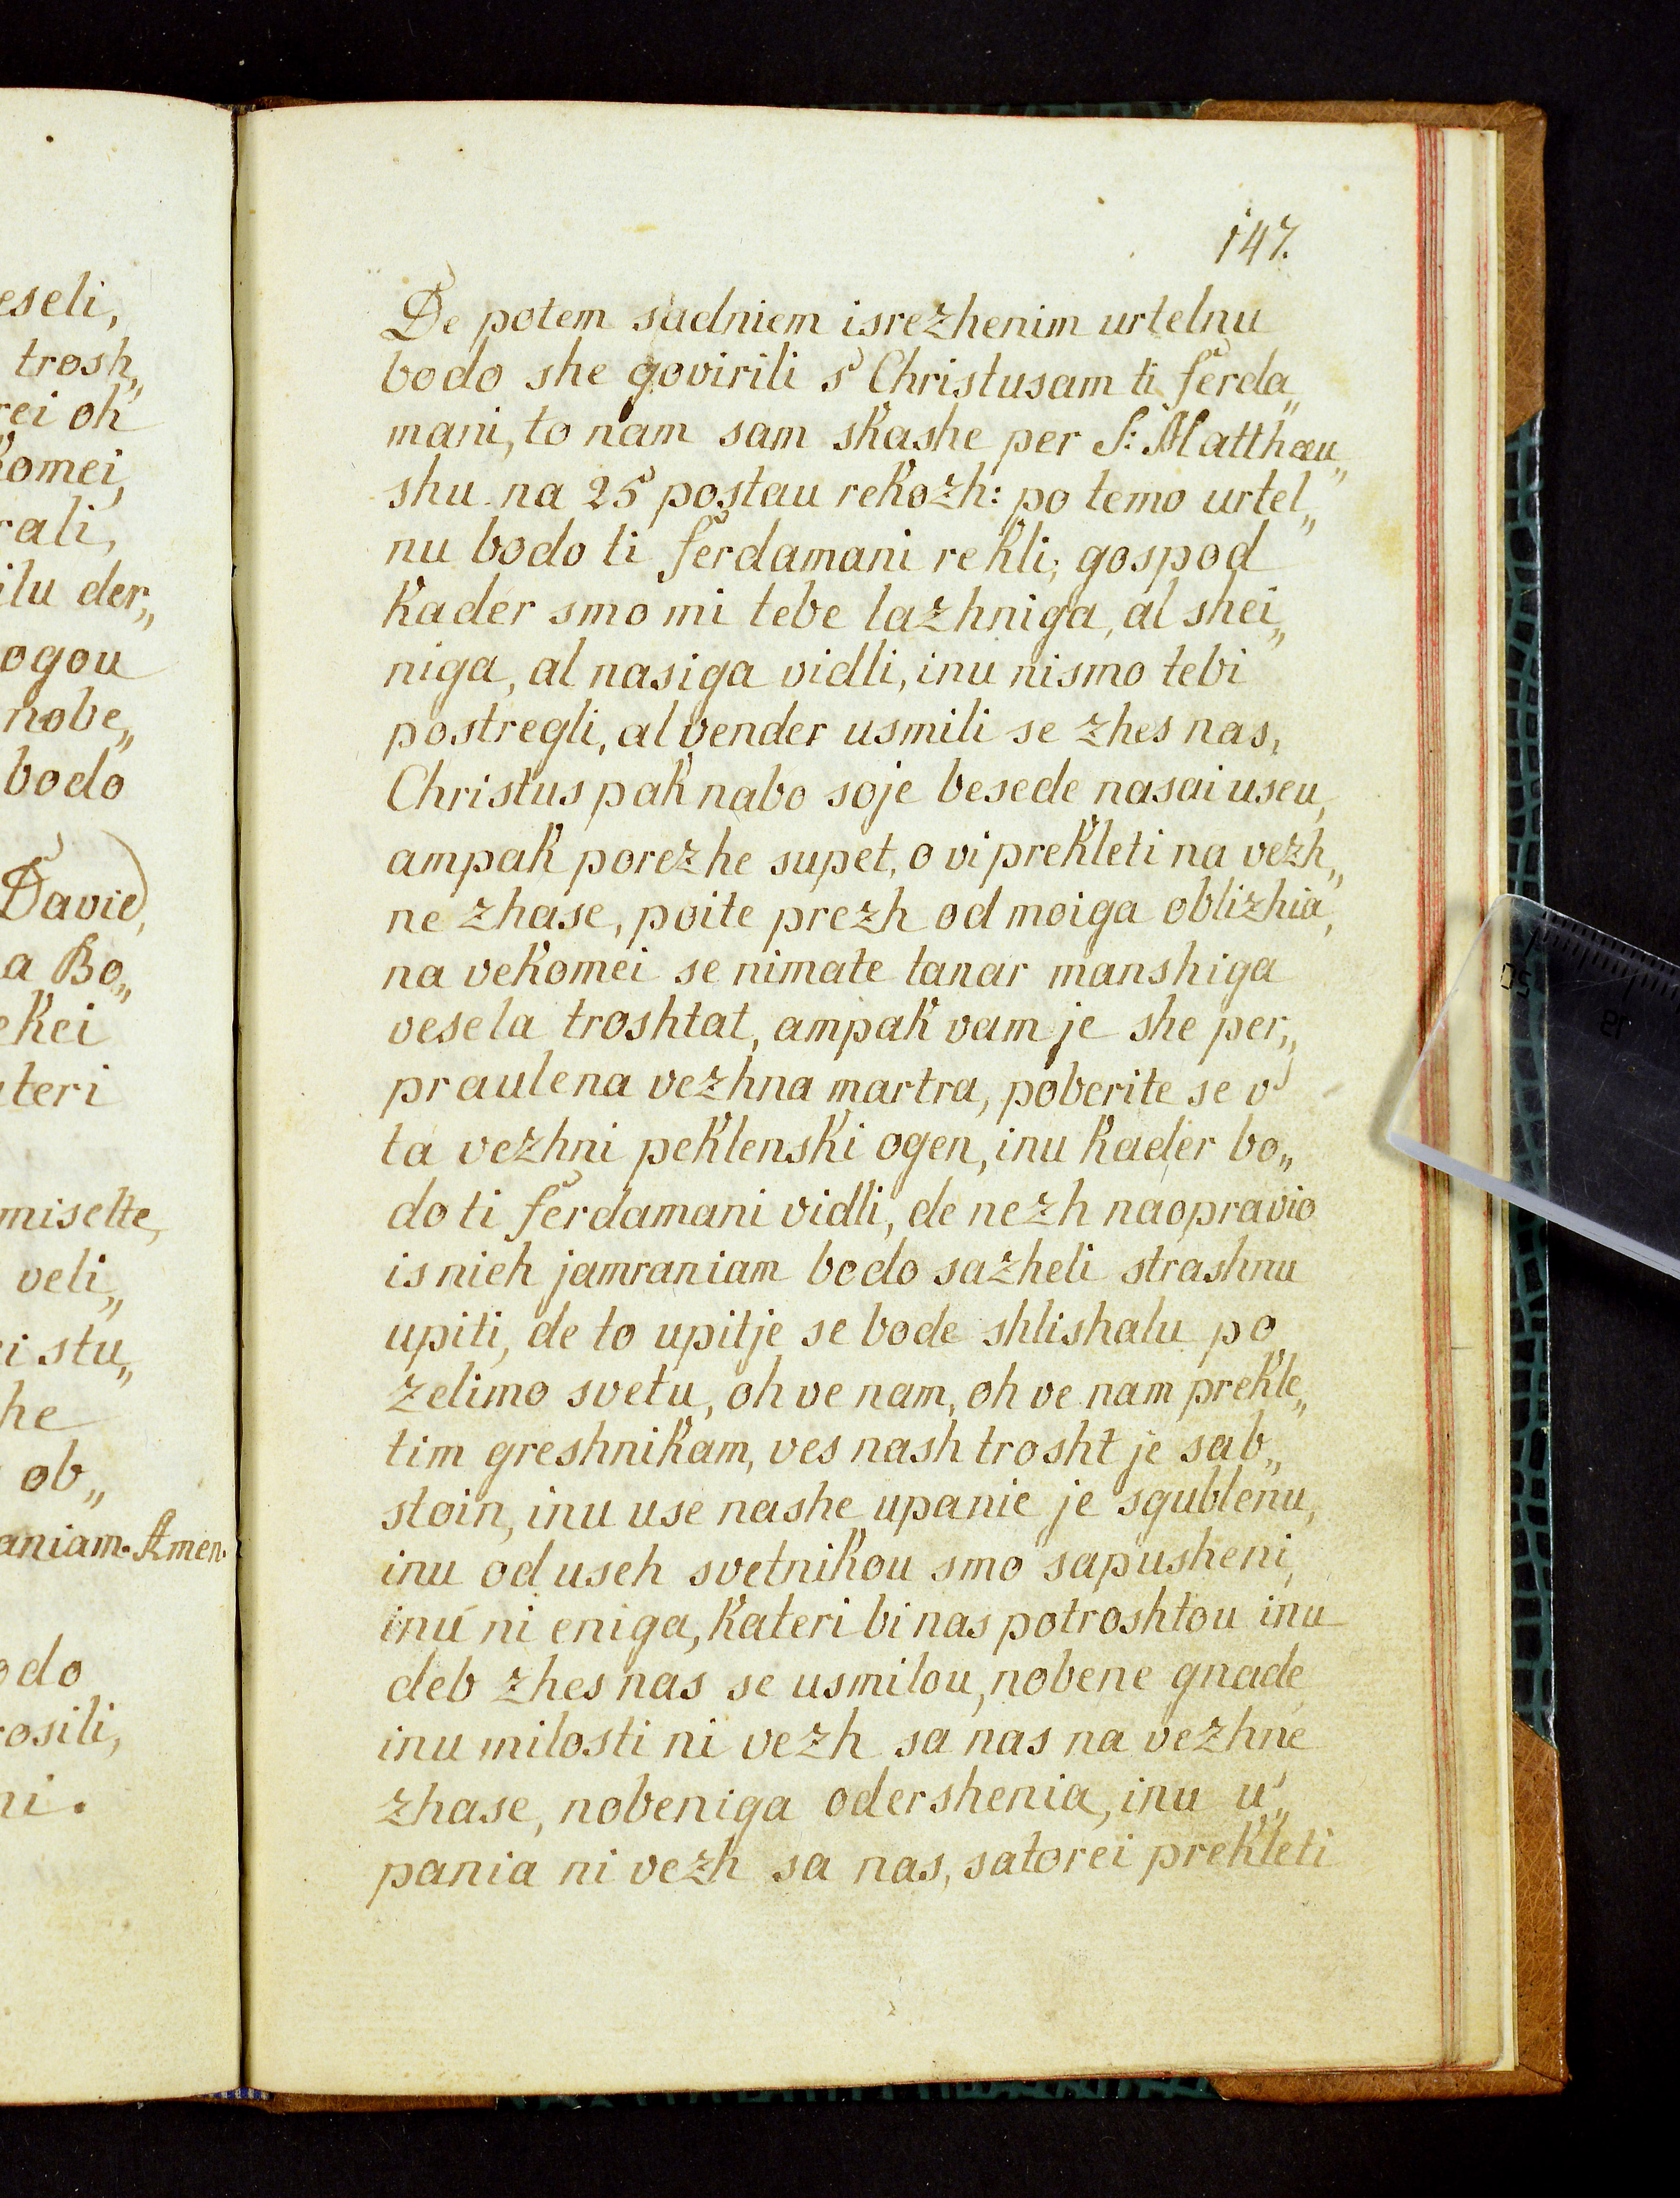 147.
De potem sadniem isrezhenim urtelnu
bodo she govirili s' Christusam ti ferda„
mani, to nam sam skashe per S: Matthæu„
shu na 25 postau rekozh: po temo urtel„
nu bodo ti ferdamani rekli; gospod
kader smo mi tebe lazhniga, al shei„
niga, al nasiga vidli, inu nismo tebi
postregli, al vender usmili se zhes nas,
Christus pak nabo soje besede nasai useu,
ampak porezhe supet, o vi prekleti na vezh„
ne zhase, poite prezh od moiga oblizhia,
na vekomei se nimate tanar manshiga
vesela troshtat, ampak vam je she per„
praulena vezhna martra, poberite se v'
ta vezhni peklenski ogen, inu kader bo„
do ti ferdamani vidli, de nezh naopravio
is nieh jamraniam bodo sazheli strashnu
upiti, de to upitje se bode shlishalu po
zelimo svetu, oh ve nam, oh ve nam prekle„
tim greshnikam, ves nash trosht je sab„
stoin, inu use nashe upanie je sgublenu,
inu od useh svetnikou smo sapusheni,
inu ni eniga, kateri bi nas potroshtou inu
deb zhes nas se usmilou, nobene gnade
inu milosti ni vezh sa nas na vezhne
zhase, nobeniga odershenia, inu u„
pania ni vezh sa nas, satorei prekleti
eseli,
trosh„
rei oh
komei,
rali,
ilu der„
ogou
nobe„
bodo
David,
a Bo„
ekei
ateri
miselte,
veli„
i stu„
he
ob„
aniam. Amen.
odo
rosili,
ni.